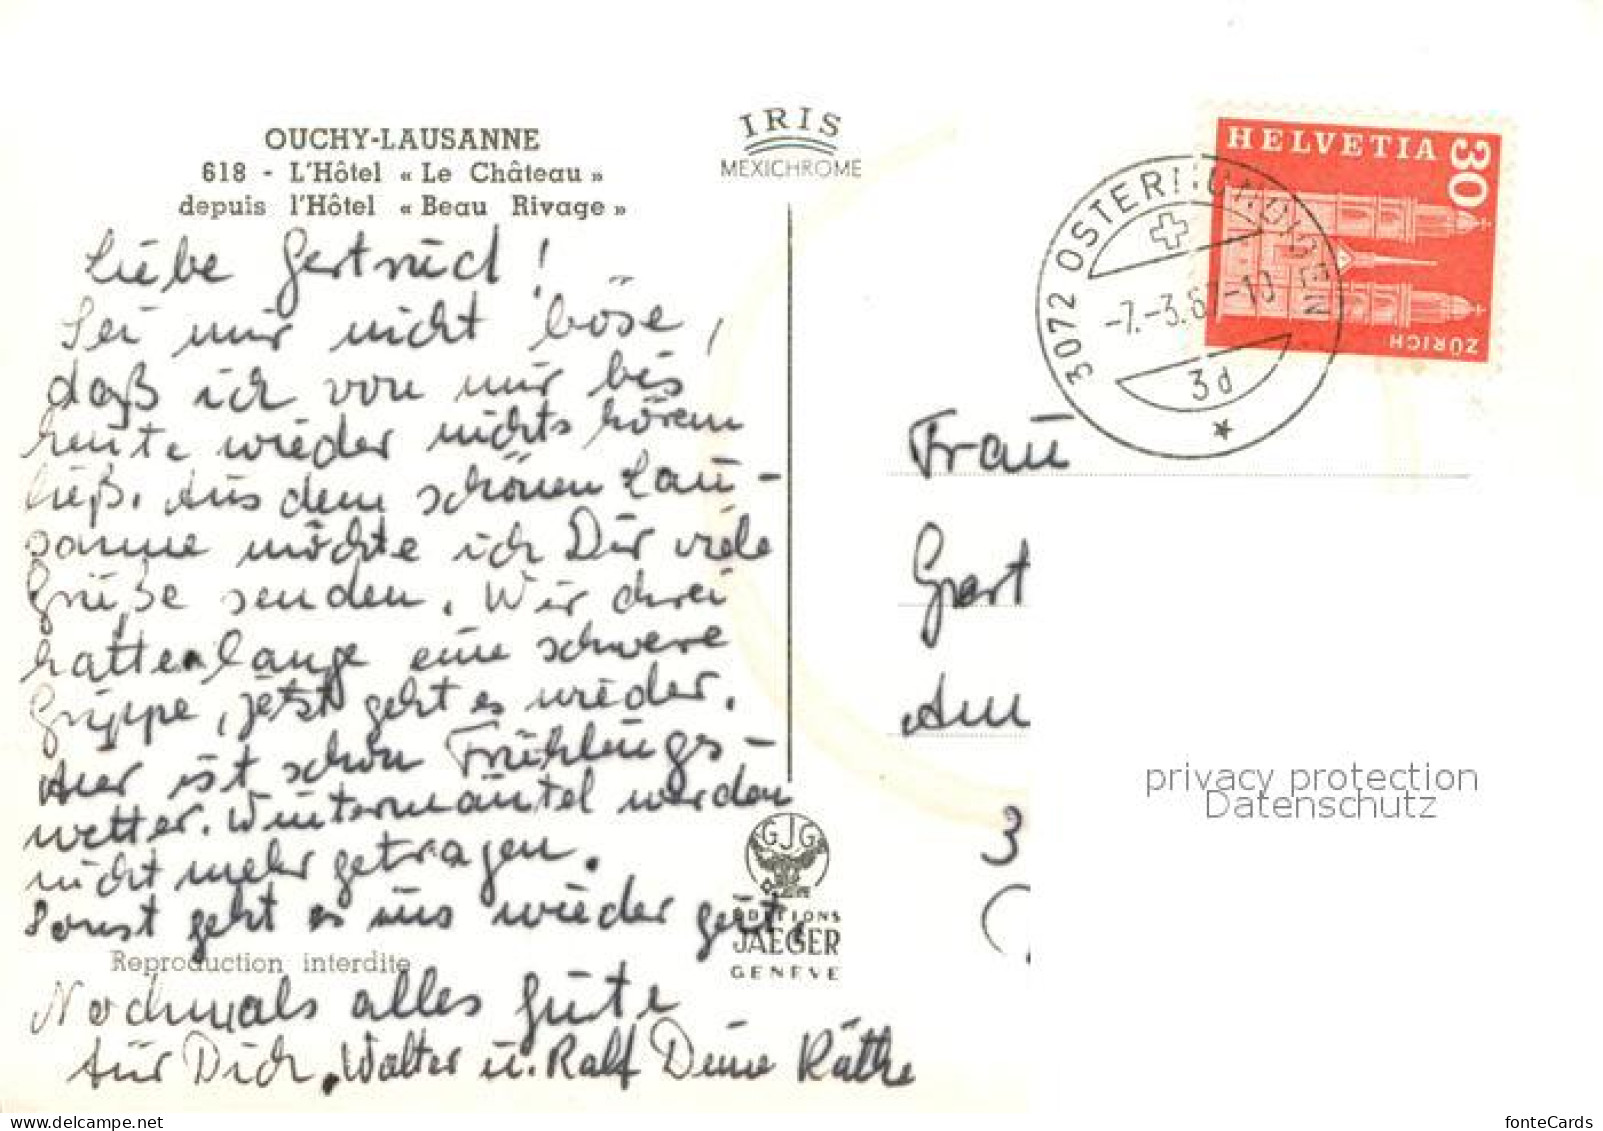 OUCHY-LAUSANNE
618 - L'Hôtel « Le Château »
depuis l'Hôtel « Beau Rivage »
IRIS
MEXICHROME
HELVETIA 30
ZÜRICH
3072 OSTERMUNDIGEN
-7.-3.67-10
3d
Liebe Gertrud!
Sei mir nicht böse,
daß ich von mir bis
heute wieder nichts hören
ließ. Aus dem schönen Lau-
sanne möchte ich Dir viele
Grüße senden. Wir drei
hatten lange eine schwere
Grippe, jetzt geht es wieder.
Hier ist schon Frühlings-
wetter. Wintermäntel werden
nicht mehr getragen.
Sonst geht es uns wieder gut,
Reproduction interdite
Nochmals alles Gute
für Dich, Walter u. Ralf Deine Käthe
Frau
Gert
Am
3
GJG
EDITIONS
JAEGER
GENÈVE
privacy protection
Datenschutz
fonteCards